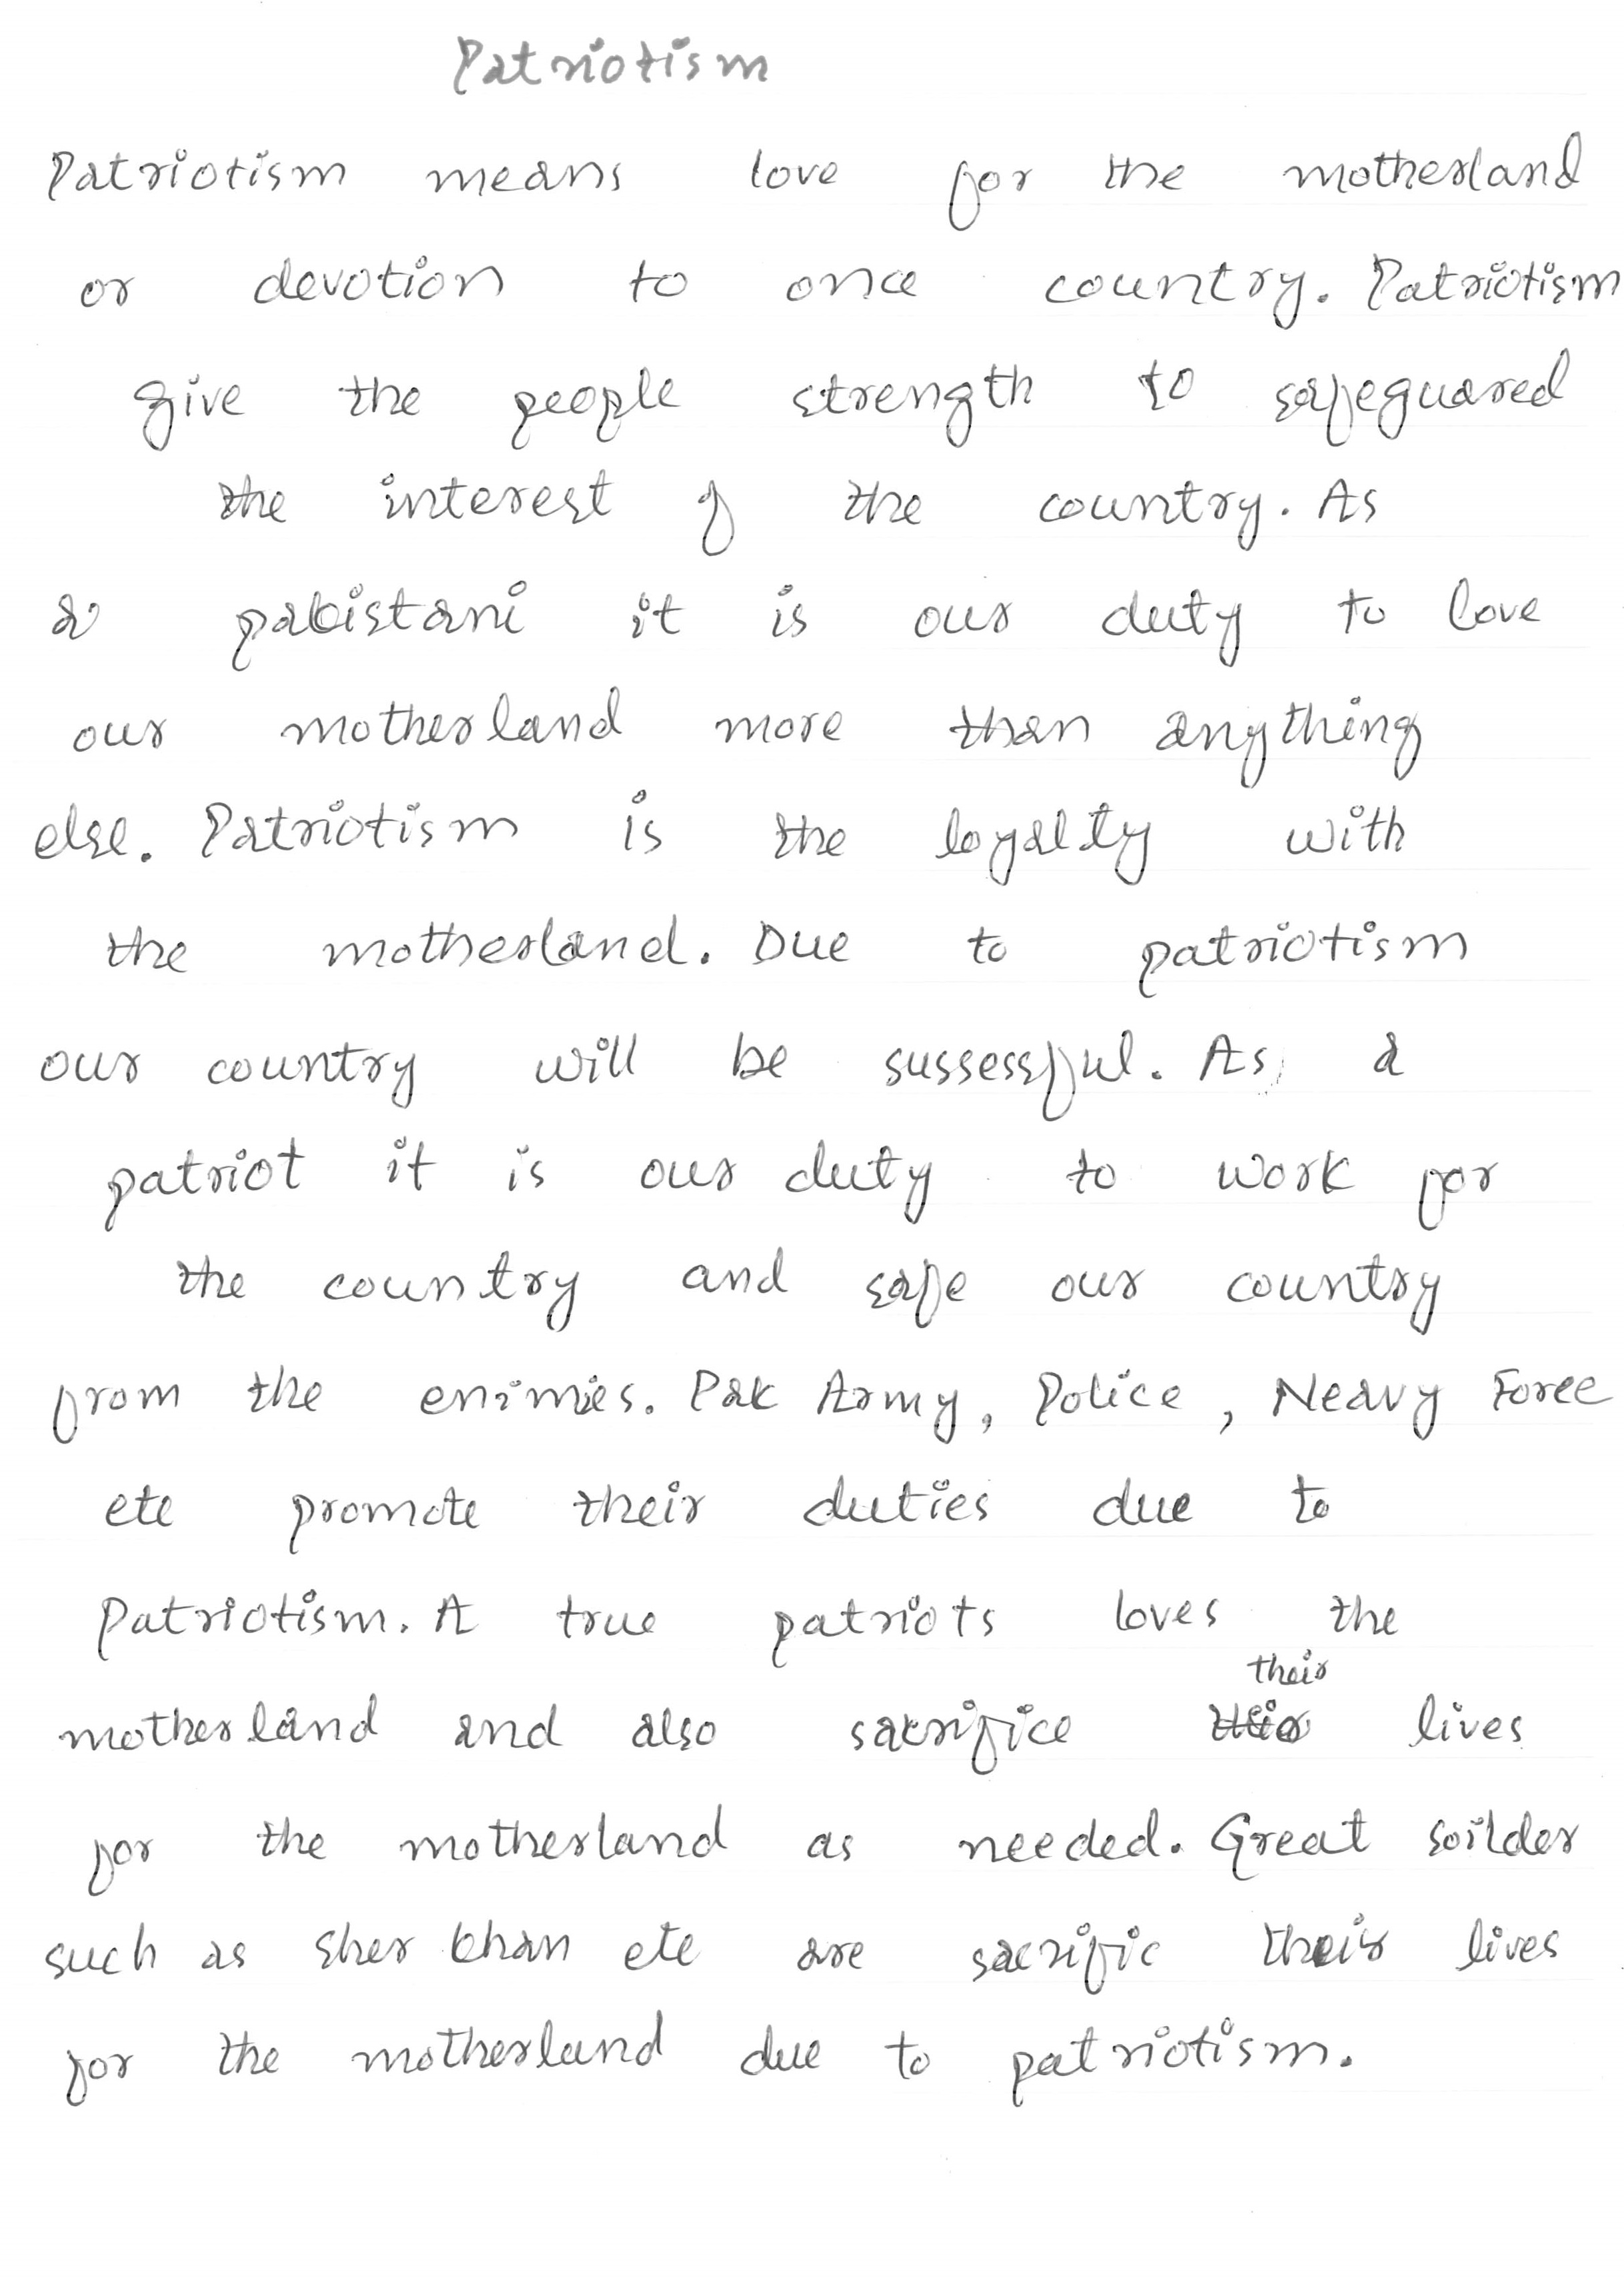 Patriotism
Patriotism means love for the motherland
or devotion to once country. Patriotism
give the people strength to safeguared
the interest of the country. As
a pakistani it is our duty to love
our motherland more than anything
else. Patriotism is the loyalty with
the motherland. Due to patriotism
our country will be sussessful. As a
patriot it is our duty to work for
the country and safe our country
from the enimies. Pak Army, Police, Neavy Force
etc promote their duties due to
Patriotism. A true patriots loves the
their
motherland and also sacrifice lives
for the motherland as needed. Great soilder
such as sher khan etc are sacrific their lives
for the motherland due to patriotism.